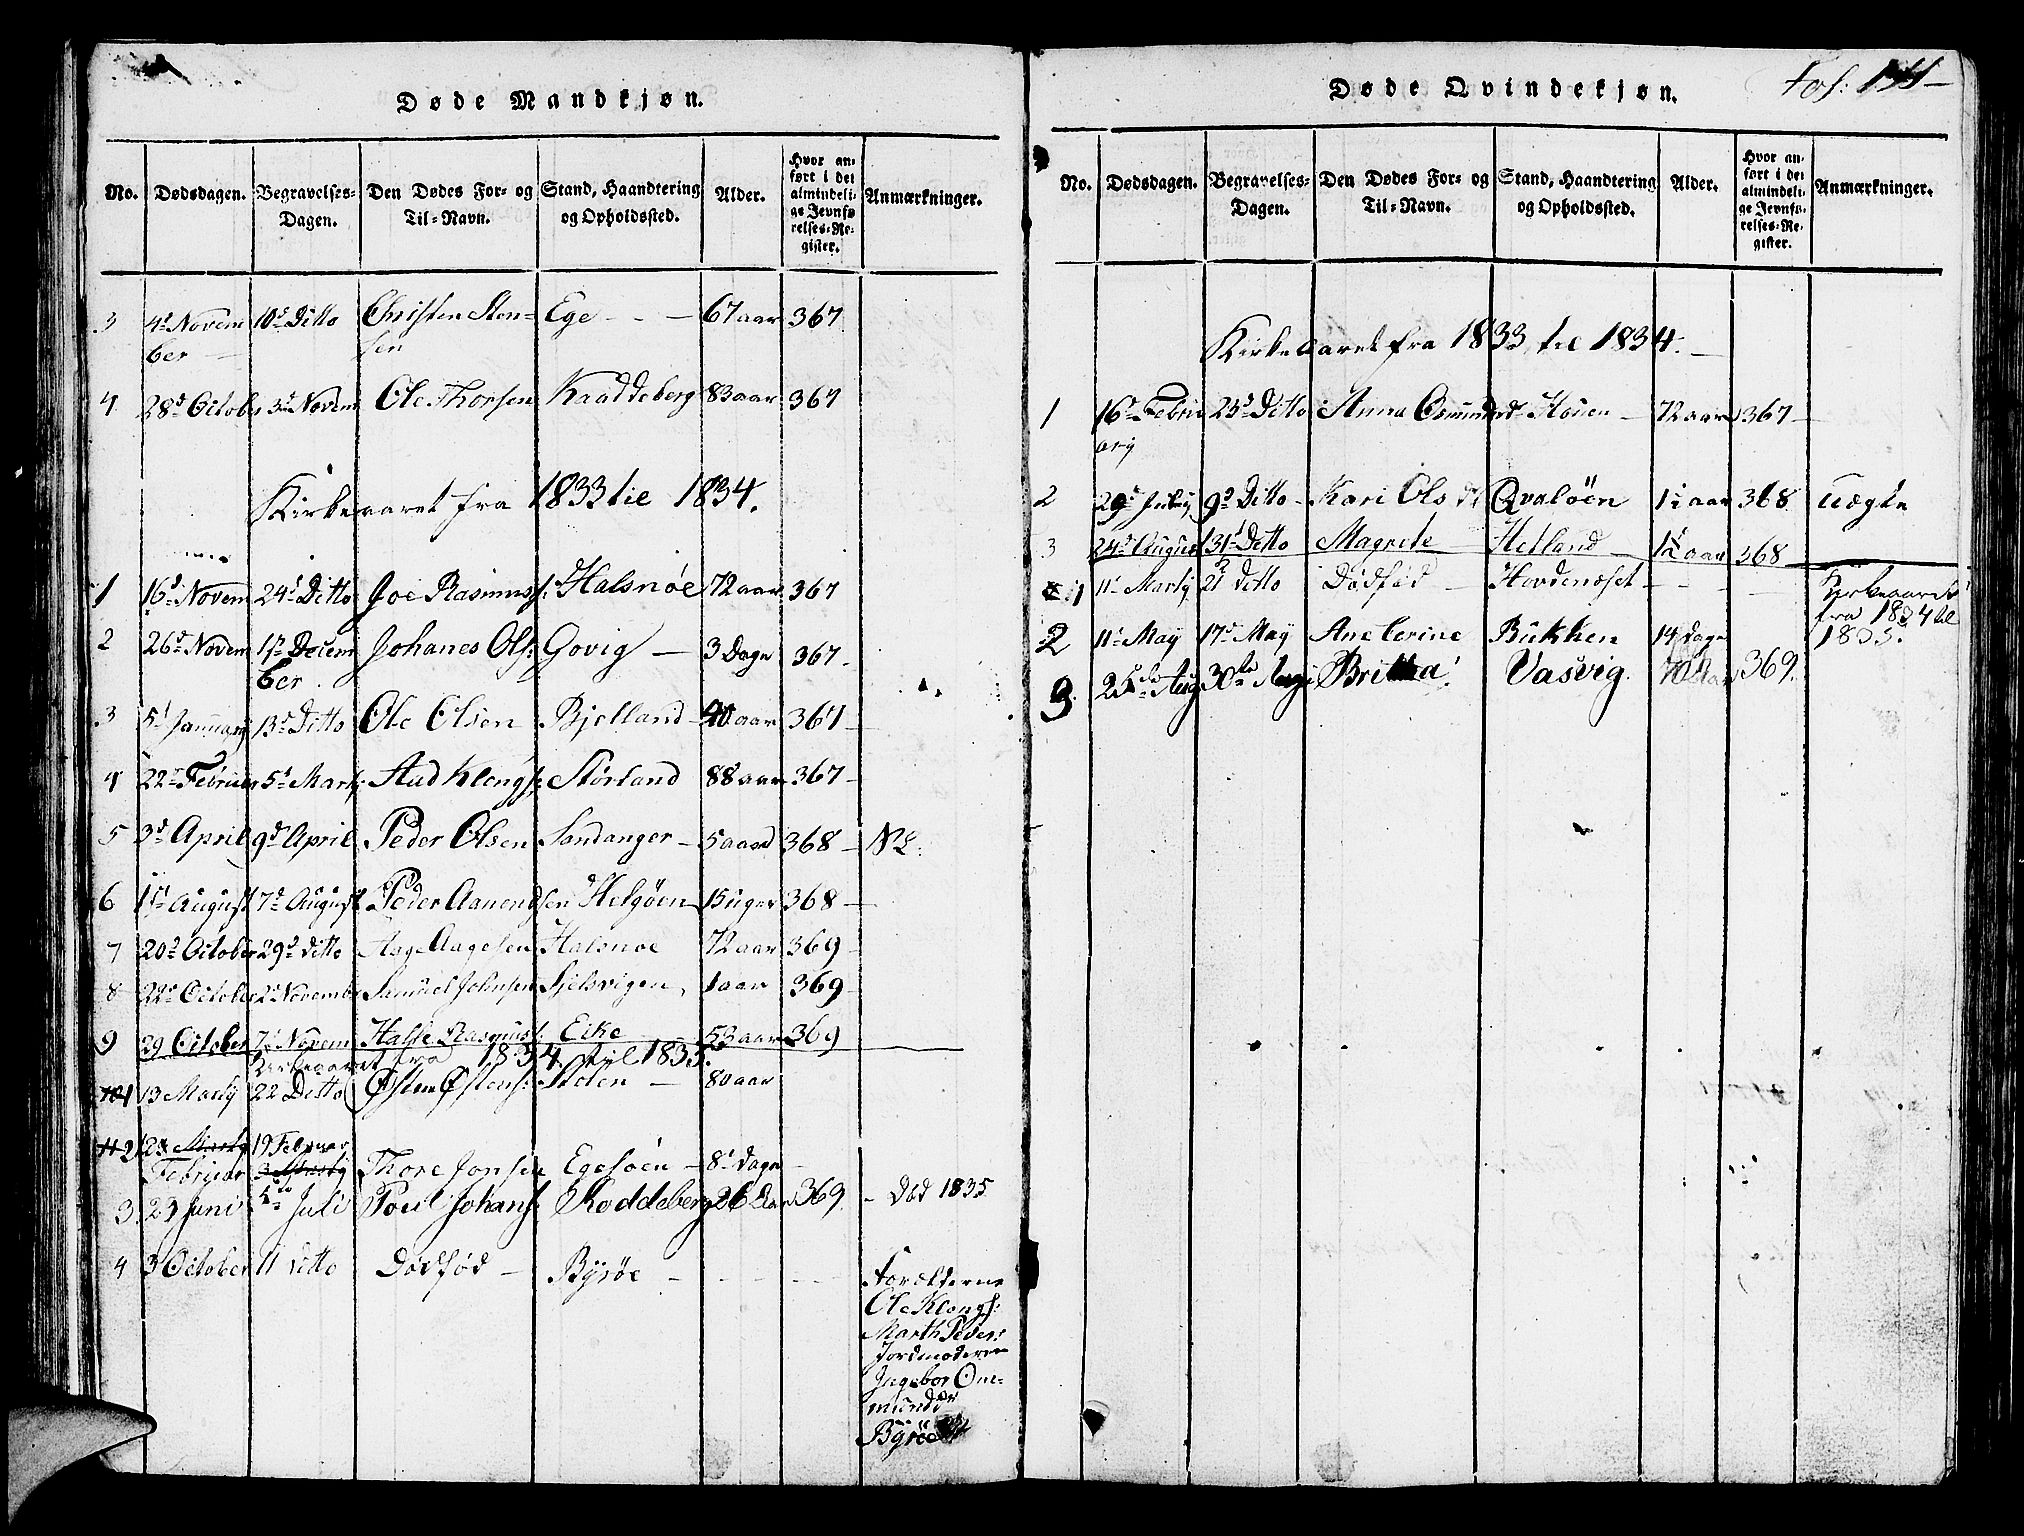 Døde Mandkjøn.
No. Dødsdagen. Begravelses-Dagen. Den Dødes For- og Til-Navn. Stand, Haandtering og Opholdssted. Alder. Hvor anført i det almindelige Jevnførelses-Register. Anmærkninger.
3 4d Novem 10d Ditto Christen Sten= Ege - - - 67 aar 367
ber sen
4 28d October 3d Novem Ole Thorsen Kaaddeberg 83 aar 367
Kirkeaaret fra 1833 til 1834.
1 16d Novem 24d Ditto Joe Rasmuss. Halsnøe 72 aar 367
2 26d Novem 1st Decem Johanes Ols: Govig - 3 Dage 367
ber
3 5t January 13d Ditto Ole Olsen Bjelland 40 aar 367
4 22d Februar 5t Marty Aad Klengs: Størland 88 aar 367
5 3d April 9d April Peder Olsen Sandanger 5 aar 368 NB.
6 1st August 7d August Peder Aanendsen Helgøen 15 uger 368
7 20d October 29d Ditto Aage Aagesen Halsnøe 72 aar 369
8 22d October 2d November Samuel Johnsen Sjelsvigen 1 aar 369
9 29 October 7d Novem Halle Rasmuss. Eike 53 aar 369
Kirkeaaret fra 1834 til 1835.
1 13 Marty 22 Ditto Østen Østens: Stølen - 80 aar
2 Februar 19 Februar Thore Jonsen Egesøen - 8t Dage
3. 23 Juni Juli Poul Johans: Koddeberg 26 Aar 369. - Død 1835
4 3 October 11 ditto Dødfød - Byrøe - - - -
Forælderne
Ole Klengs:
Marth Peder:
Jordmoderen
Ingebor One=
mundsdr
Byrøe
Døde Qvindekjøn.
Fol: 155-
No. Dødsdagen. Begravelses-Dagen. Den Dødes For- og Til-Navn. Stand, Haandtering og Opholdssted. Alder. Hvor anført i det almindelige Jevnførelses-Register. Anmærkninger.
Kirkeaaret fra 1833 til 1834.
1 16d Febru 23d Ditto Anna Osmundsd Houen - 72 aar 367
ary
2 29d July 9d Ditto Kari Ols dt Qvaløen 1½ aar 368 uægte
3 24d August 31t Ditto Magrete Hetland 1½ aar 368
1 11t Marty 21 Ditto Dødfød Hovdenæset - - - Kirkeaaret
fra 1834 til
1835.
2 11t May 17d May Ane Cerine Bukken 14 dage
3. 25de Aug 30te Aug Britha Vasvig. 369.